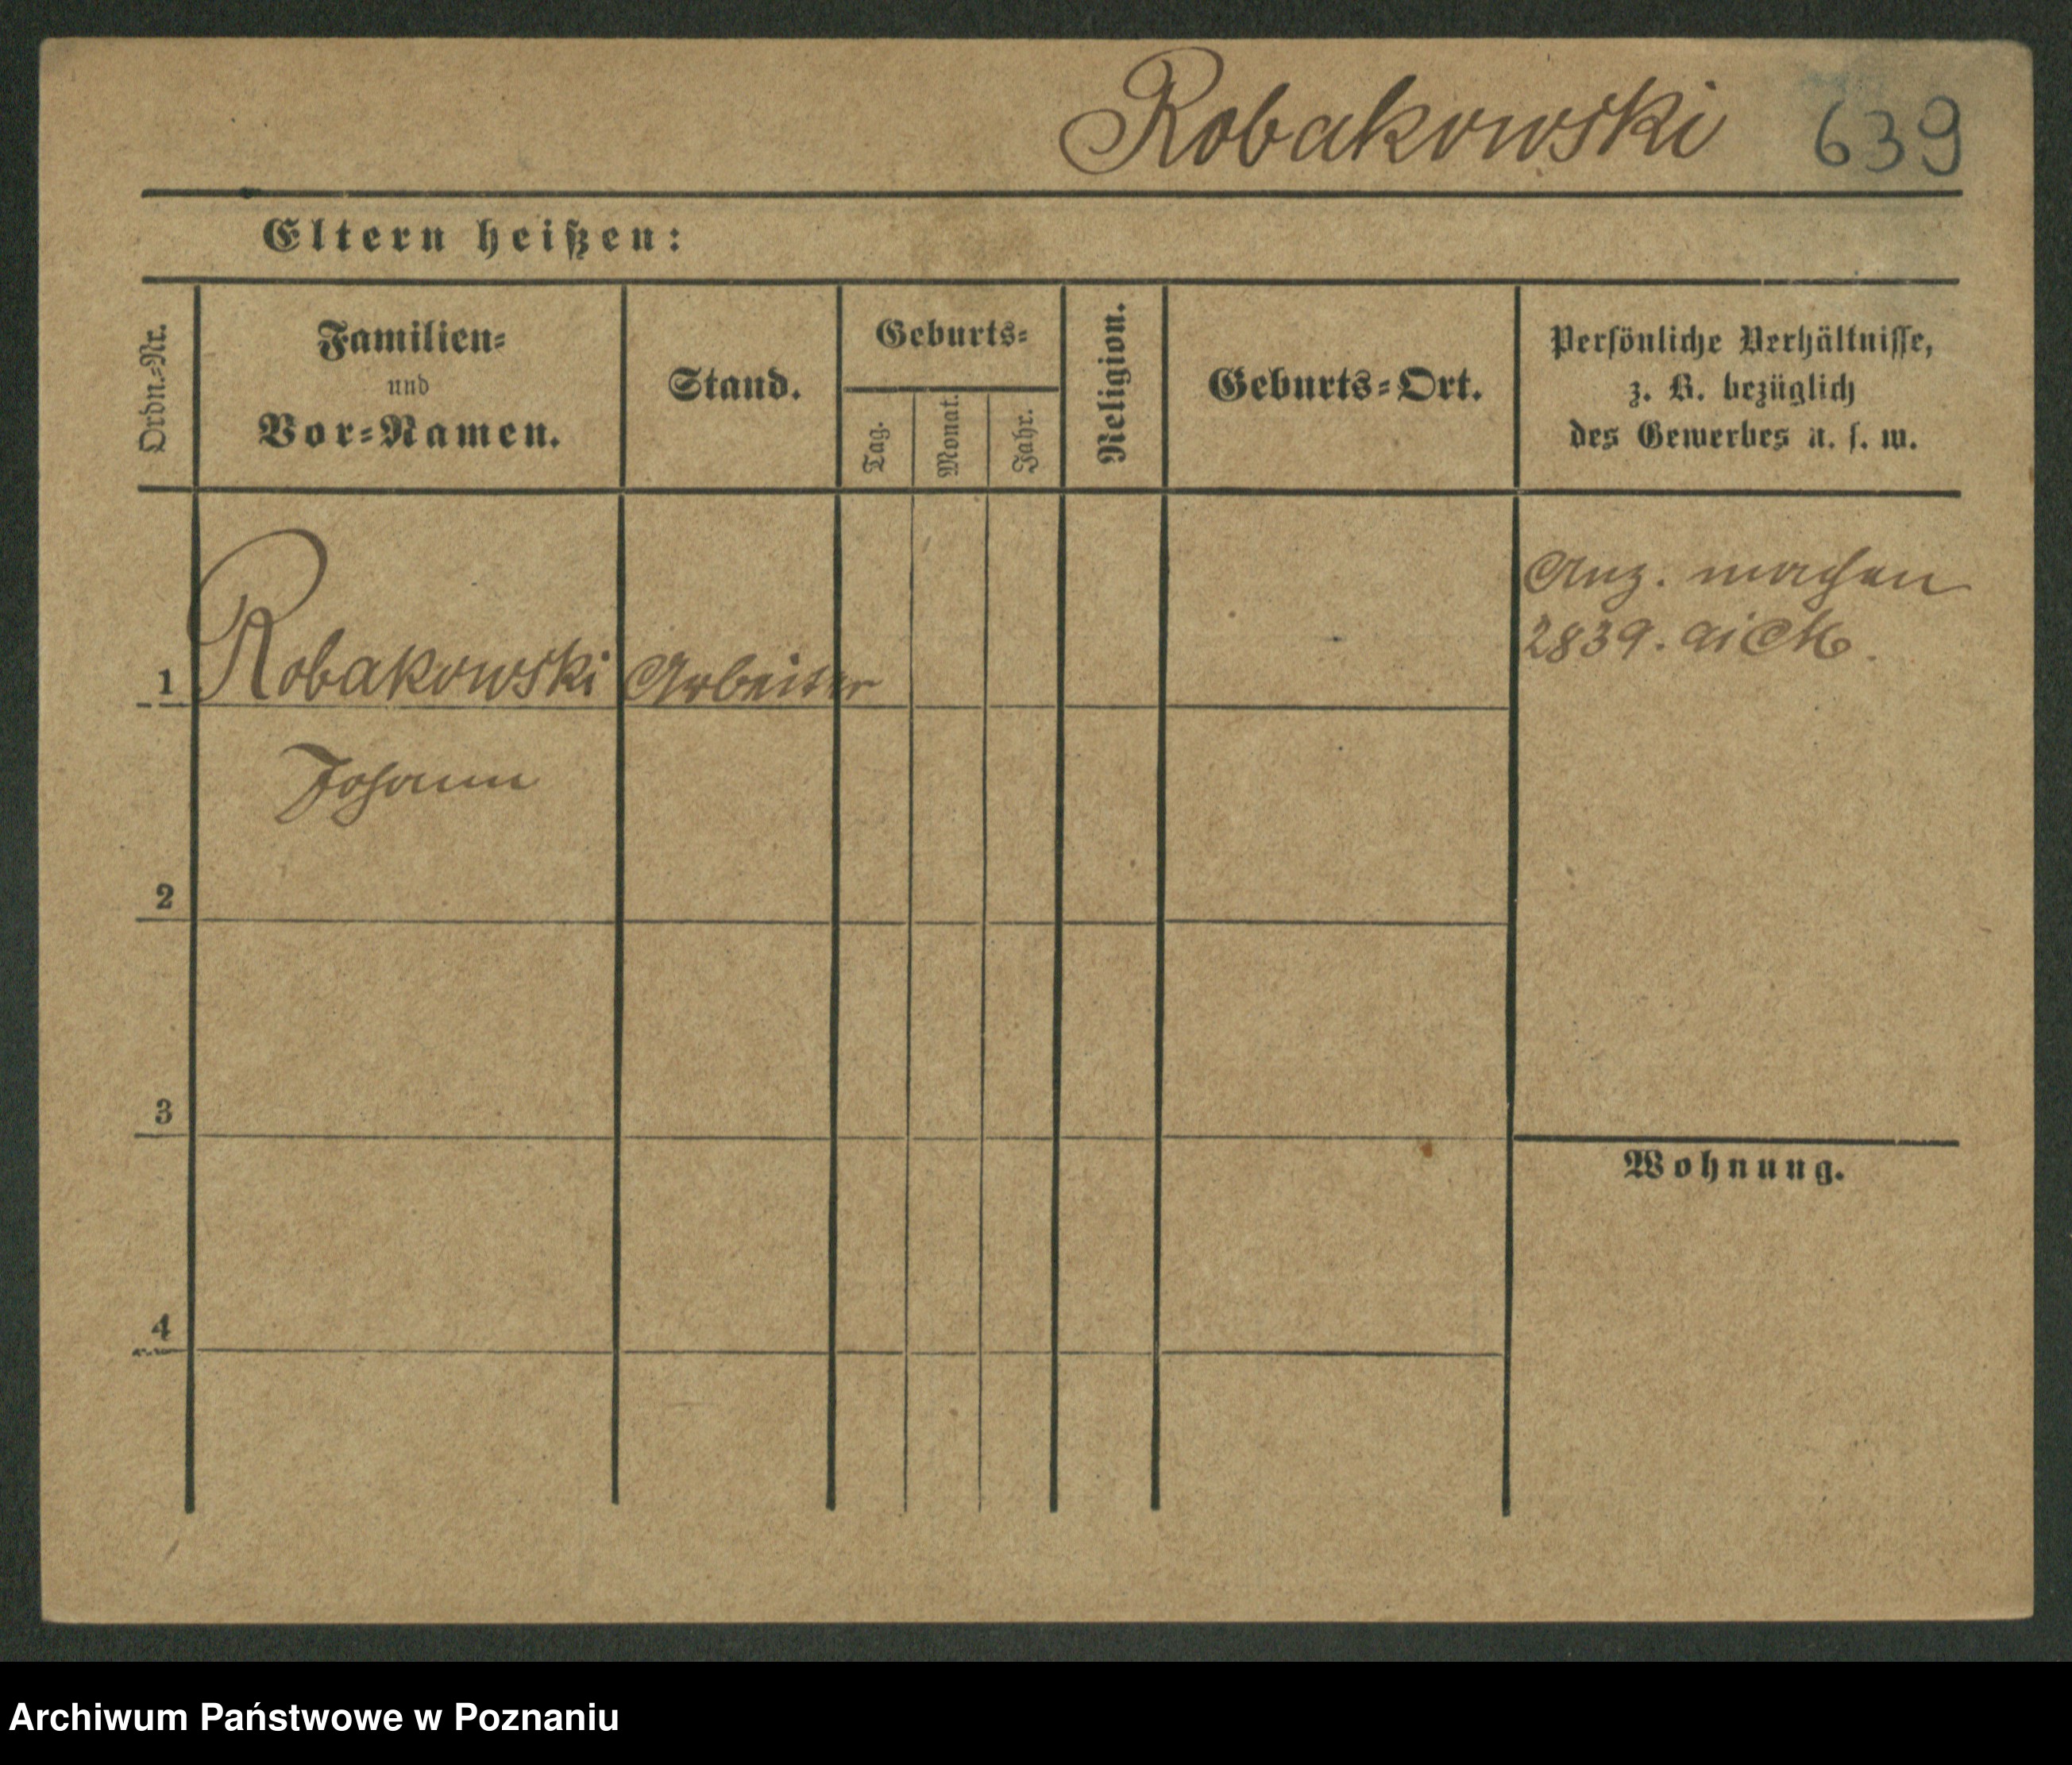 Robakowski 639
Eltern heißen:
Ordn.-Nr.
Familien-
und
Vor-Namen.
Stand.
Geburts-
Tag.
Monat.
Jahr.
Religion.
Geburts-Ort.
Persönliche Verhältnisse,
z. B. bezüglich
des Gewerbes u. s. w.
1 Robakowski Arbeiter
Johann
Anz. machen
2839.
2
3
4
Wohnung.
Archiwum Państwowe w Poznaniu